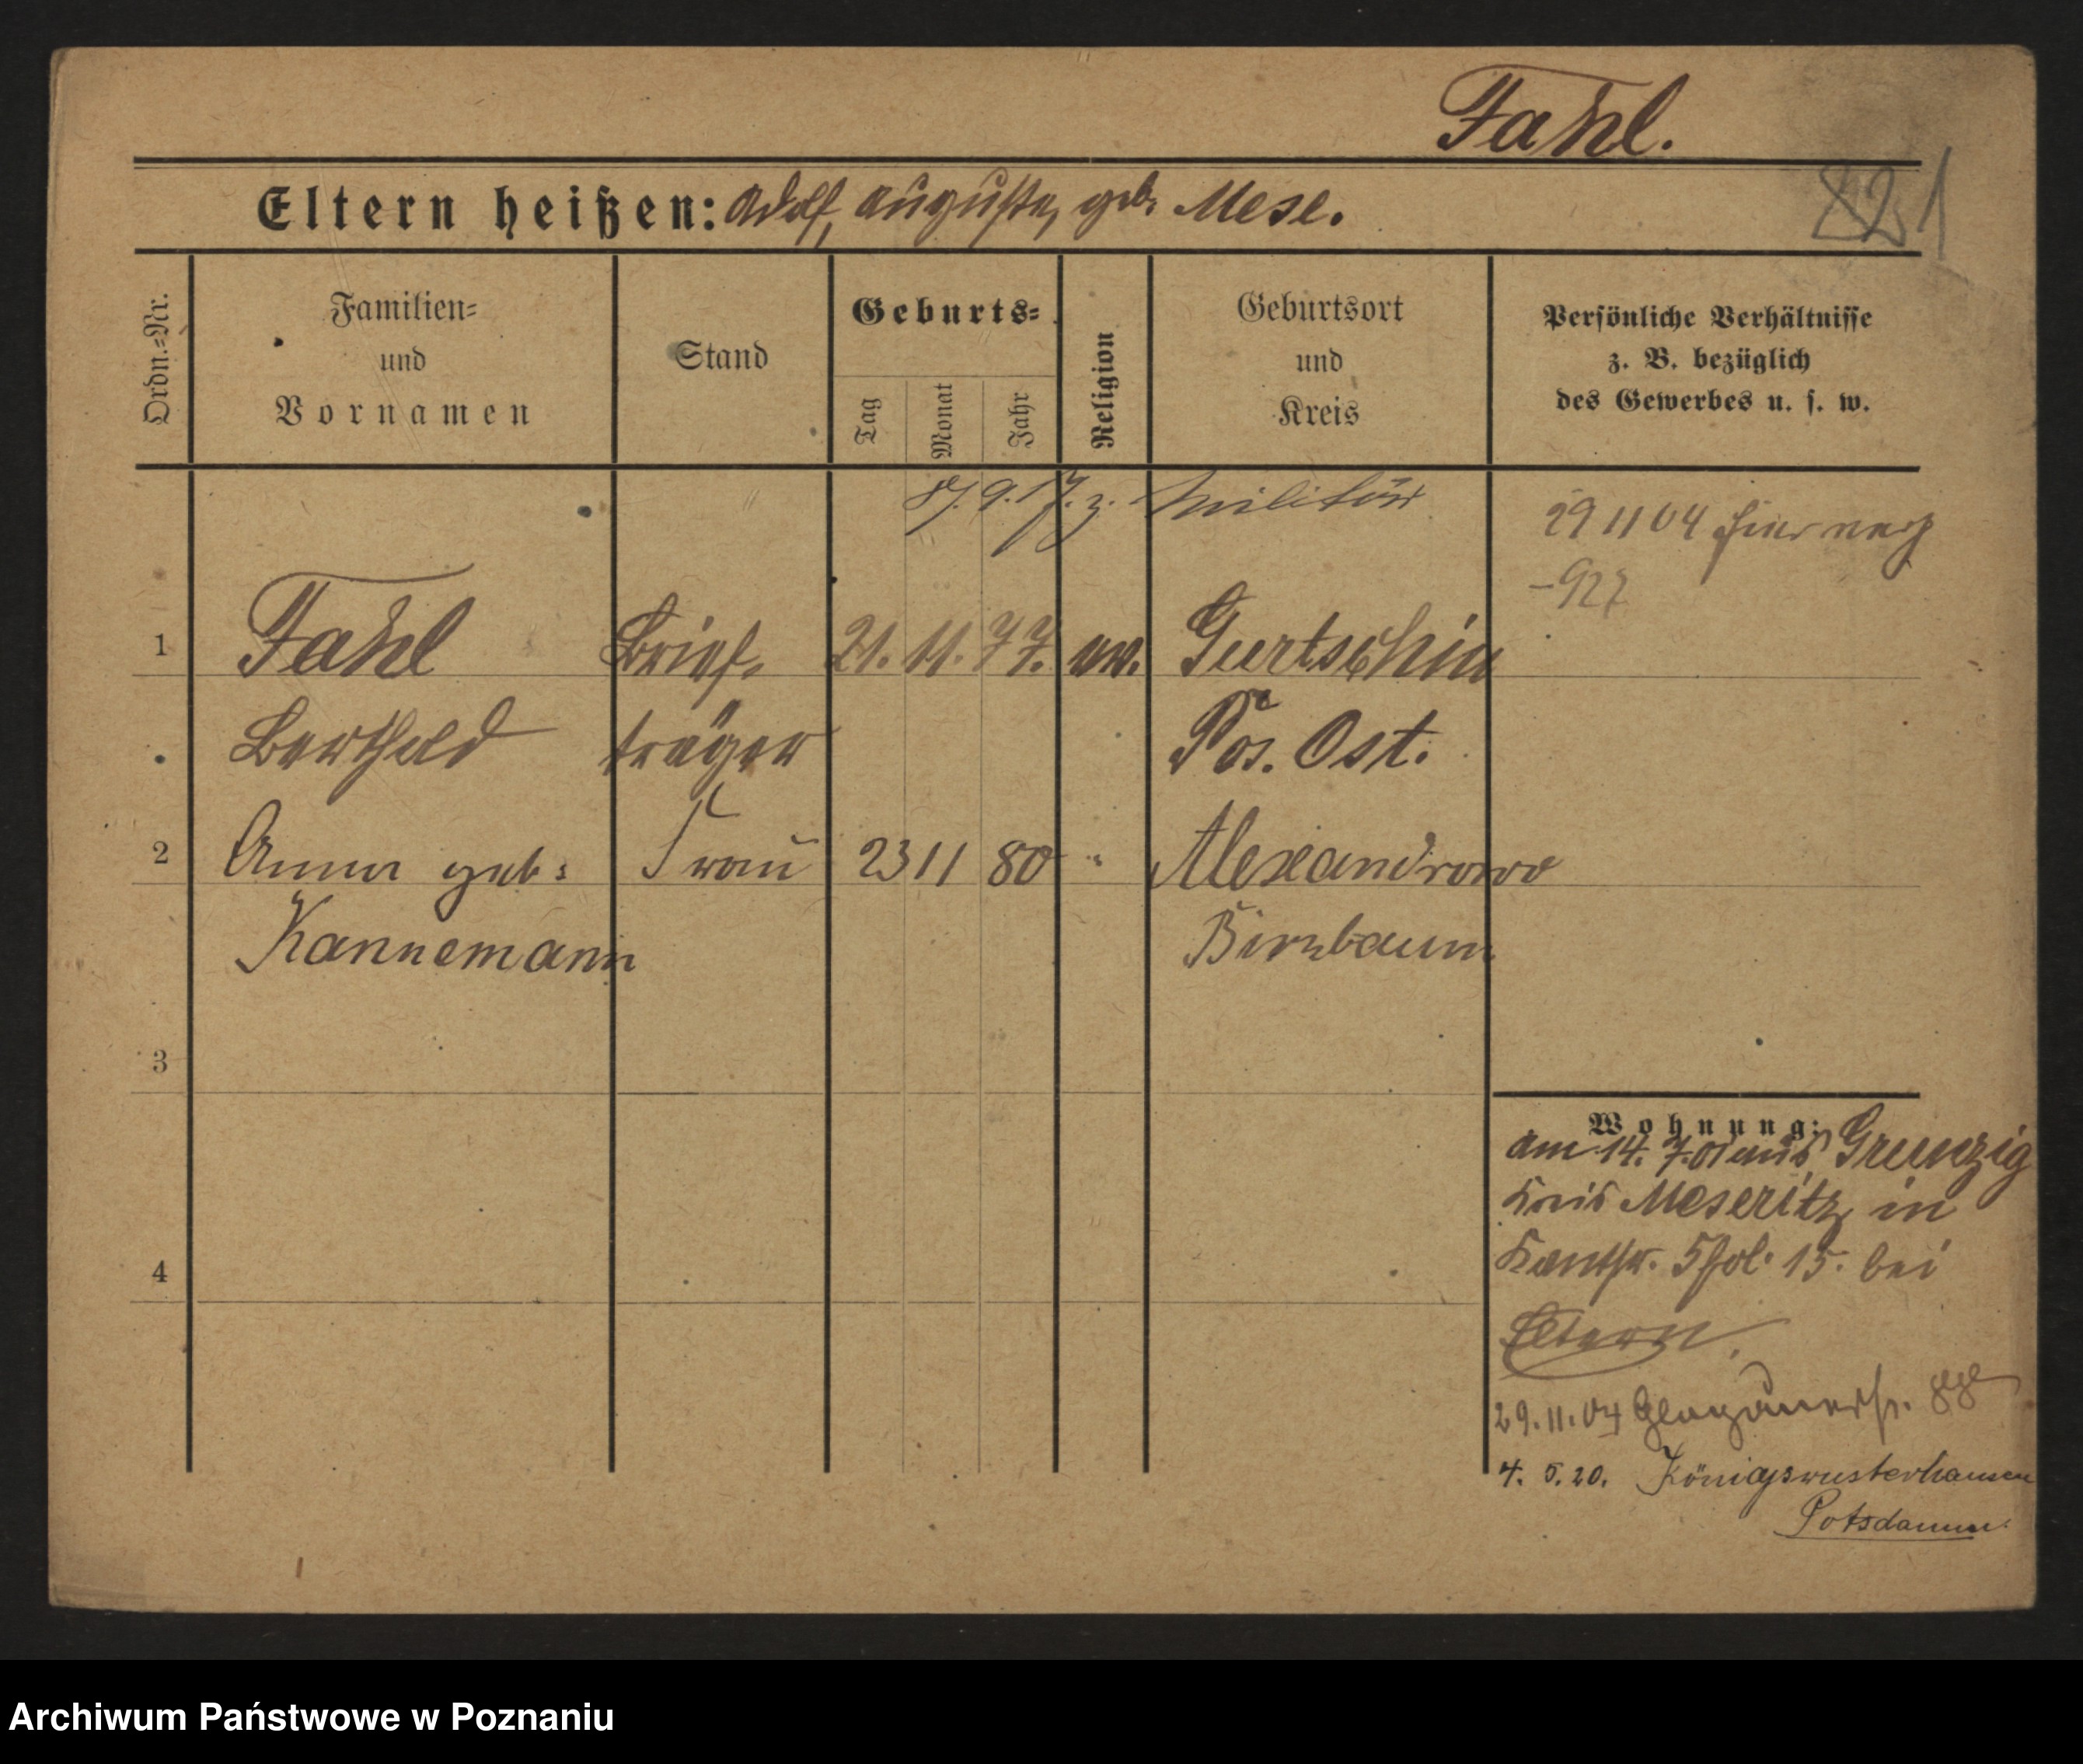 Fahl.
821
Eltern heißen: Adolf, Auguste, geb. Mese.
Ordn.=Nr.
Familien=
und
Vornamen
Stand
Geburts=
Tag
Monat
Jahr
Religion
Geburtsort
und
Kreis
Persönliche Verhältnisse
z. B. bezüglich
des Gewerbes u. s. w.
9. 17. z. Militär
29 11 04 hier
1 Fahl Brief- 21. 11. 77. ev. Gurtschin
Berthold träger Pos. Ost.
2 Anna geb: Frau 23 11 80 " Alexandrowo
Kannemann Birnbaum
3
4
Wohnung:
am 14. 7. 01 aus Grunzig
Kreis Meseritz in
15. bei
Eltern.
29.11.04 Glogauerstr.
4. 5. 20. Königswusterhausen
Potsdam
Archiwum Państwowe w Poznaniu